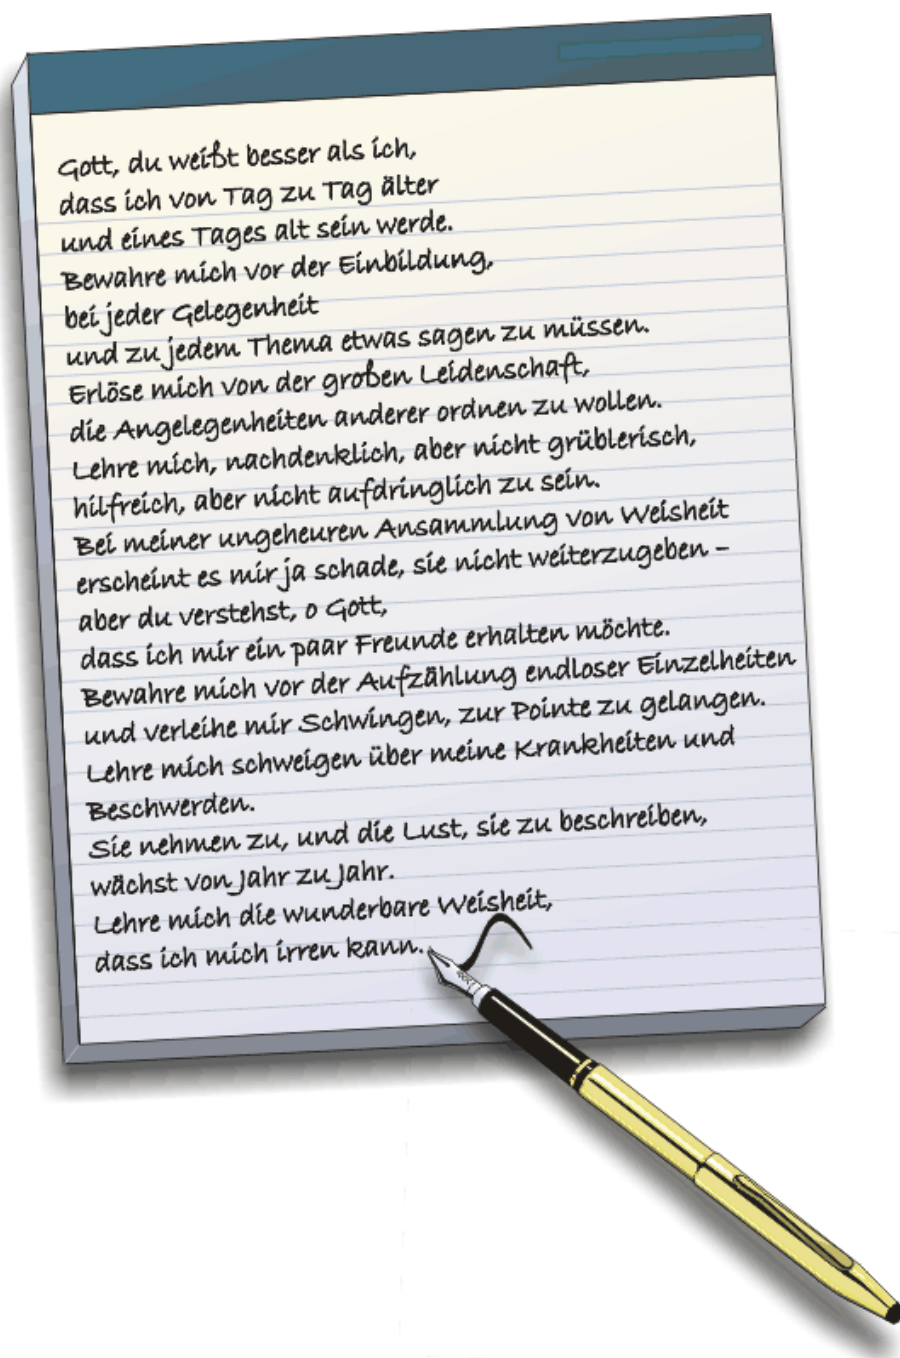 Gott, du weißt besser als ich,
dass ich von Tag zu Tag älter
und eines Tages alt sein werde.
Bewahre mich vor der Einbildung,
bei jeder Gelegenheit
und zu jedem Thema etwas sagen zu müssen.
Erlöse mich von der großen Leidenschaft,
die Angelegenheiten anderer ordnen zu wollen.
Lehre mich, nachdenklich, aber nicht grüblerisch,
hilfreich, aber nicht aufdringlich zu sein.
Bei meiner ungeheuren Ansammlung von Weisheit
erscheint es mir ja schade, sie nicht weiterzugeben –
aber du verstehst, o Gott,
dass ich mir ein paar Freunde erhalten möchte.
Bewahre mich vor der Aufzählung endloser Einzelheiten
und verleihe mir Schwingen, zur Pointe zu gelangen.
Lehre mich schweigen über meine Krankheiten und
Beschwerden.
Sie nehmen zu, und die Lust, sie zu beschreiben,
wächst von Jahr zu Jahr.
Lehre mich die wunderbare Weisheit,
dass ich mich irren kann.